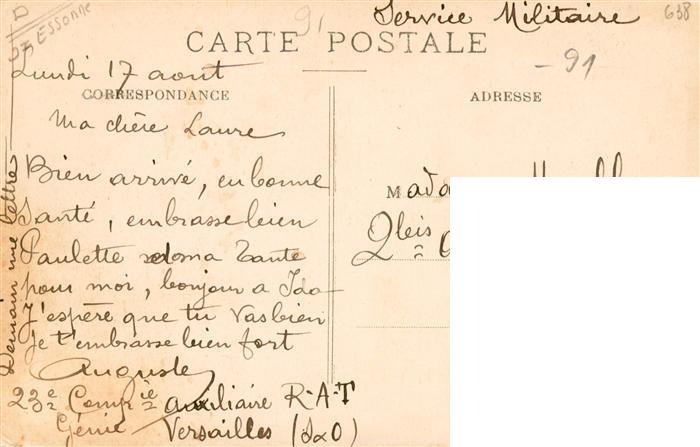 Service Militaire
638
D
Essonne
91
CARTE POSTALE
- 91
Lundi 17 aout
CORRESPONDANCE
ADRESSE
Ma chère Laure
Bien arrivé, en bonne
Santé, embrasse bien
Paulette ma Tante
pour moi, bonjour a Ida
J'espère que tu vas bien
je t'embrasse bien fort
Auguste
23e Compie auxiliaire R.A.T
Génie Versailles (S&O)
Demain une lettre
M
2 bis